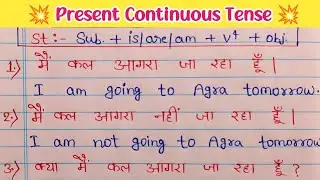 💥 Present Continuous Tense 💥
St:- Sub. + is/are/am + V⁴ + obj.
1.) मैं कल आगरा जा रहा हूँ |
I am going to Agra tomorrow.
2.) मैं कल आगरा नहीं जा रहा हूँ |
I am not going to Agra tomorrow.
3.) क्या मैं कल आगरा जा रहा हूँ ?